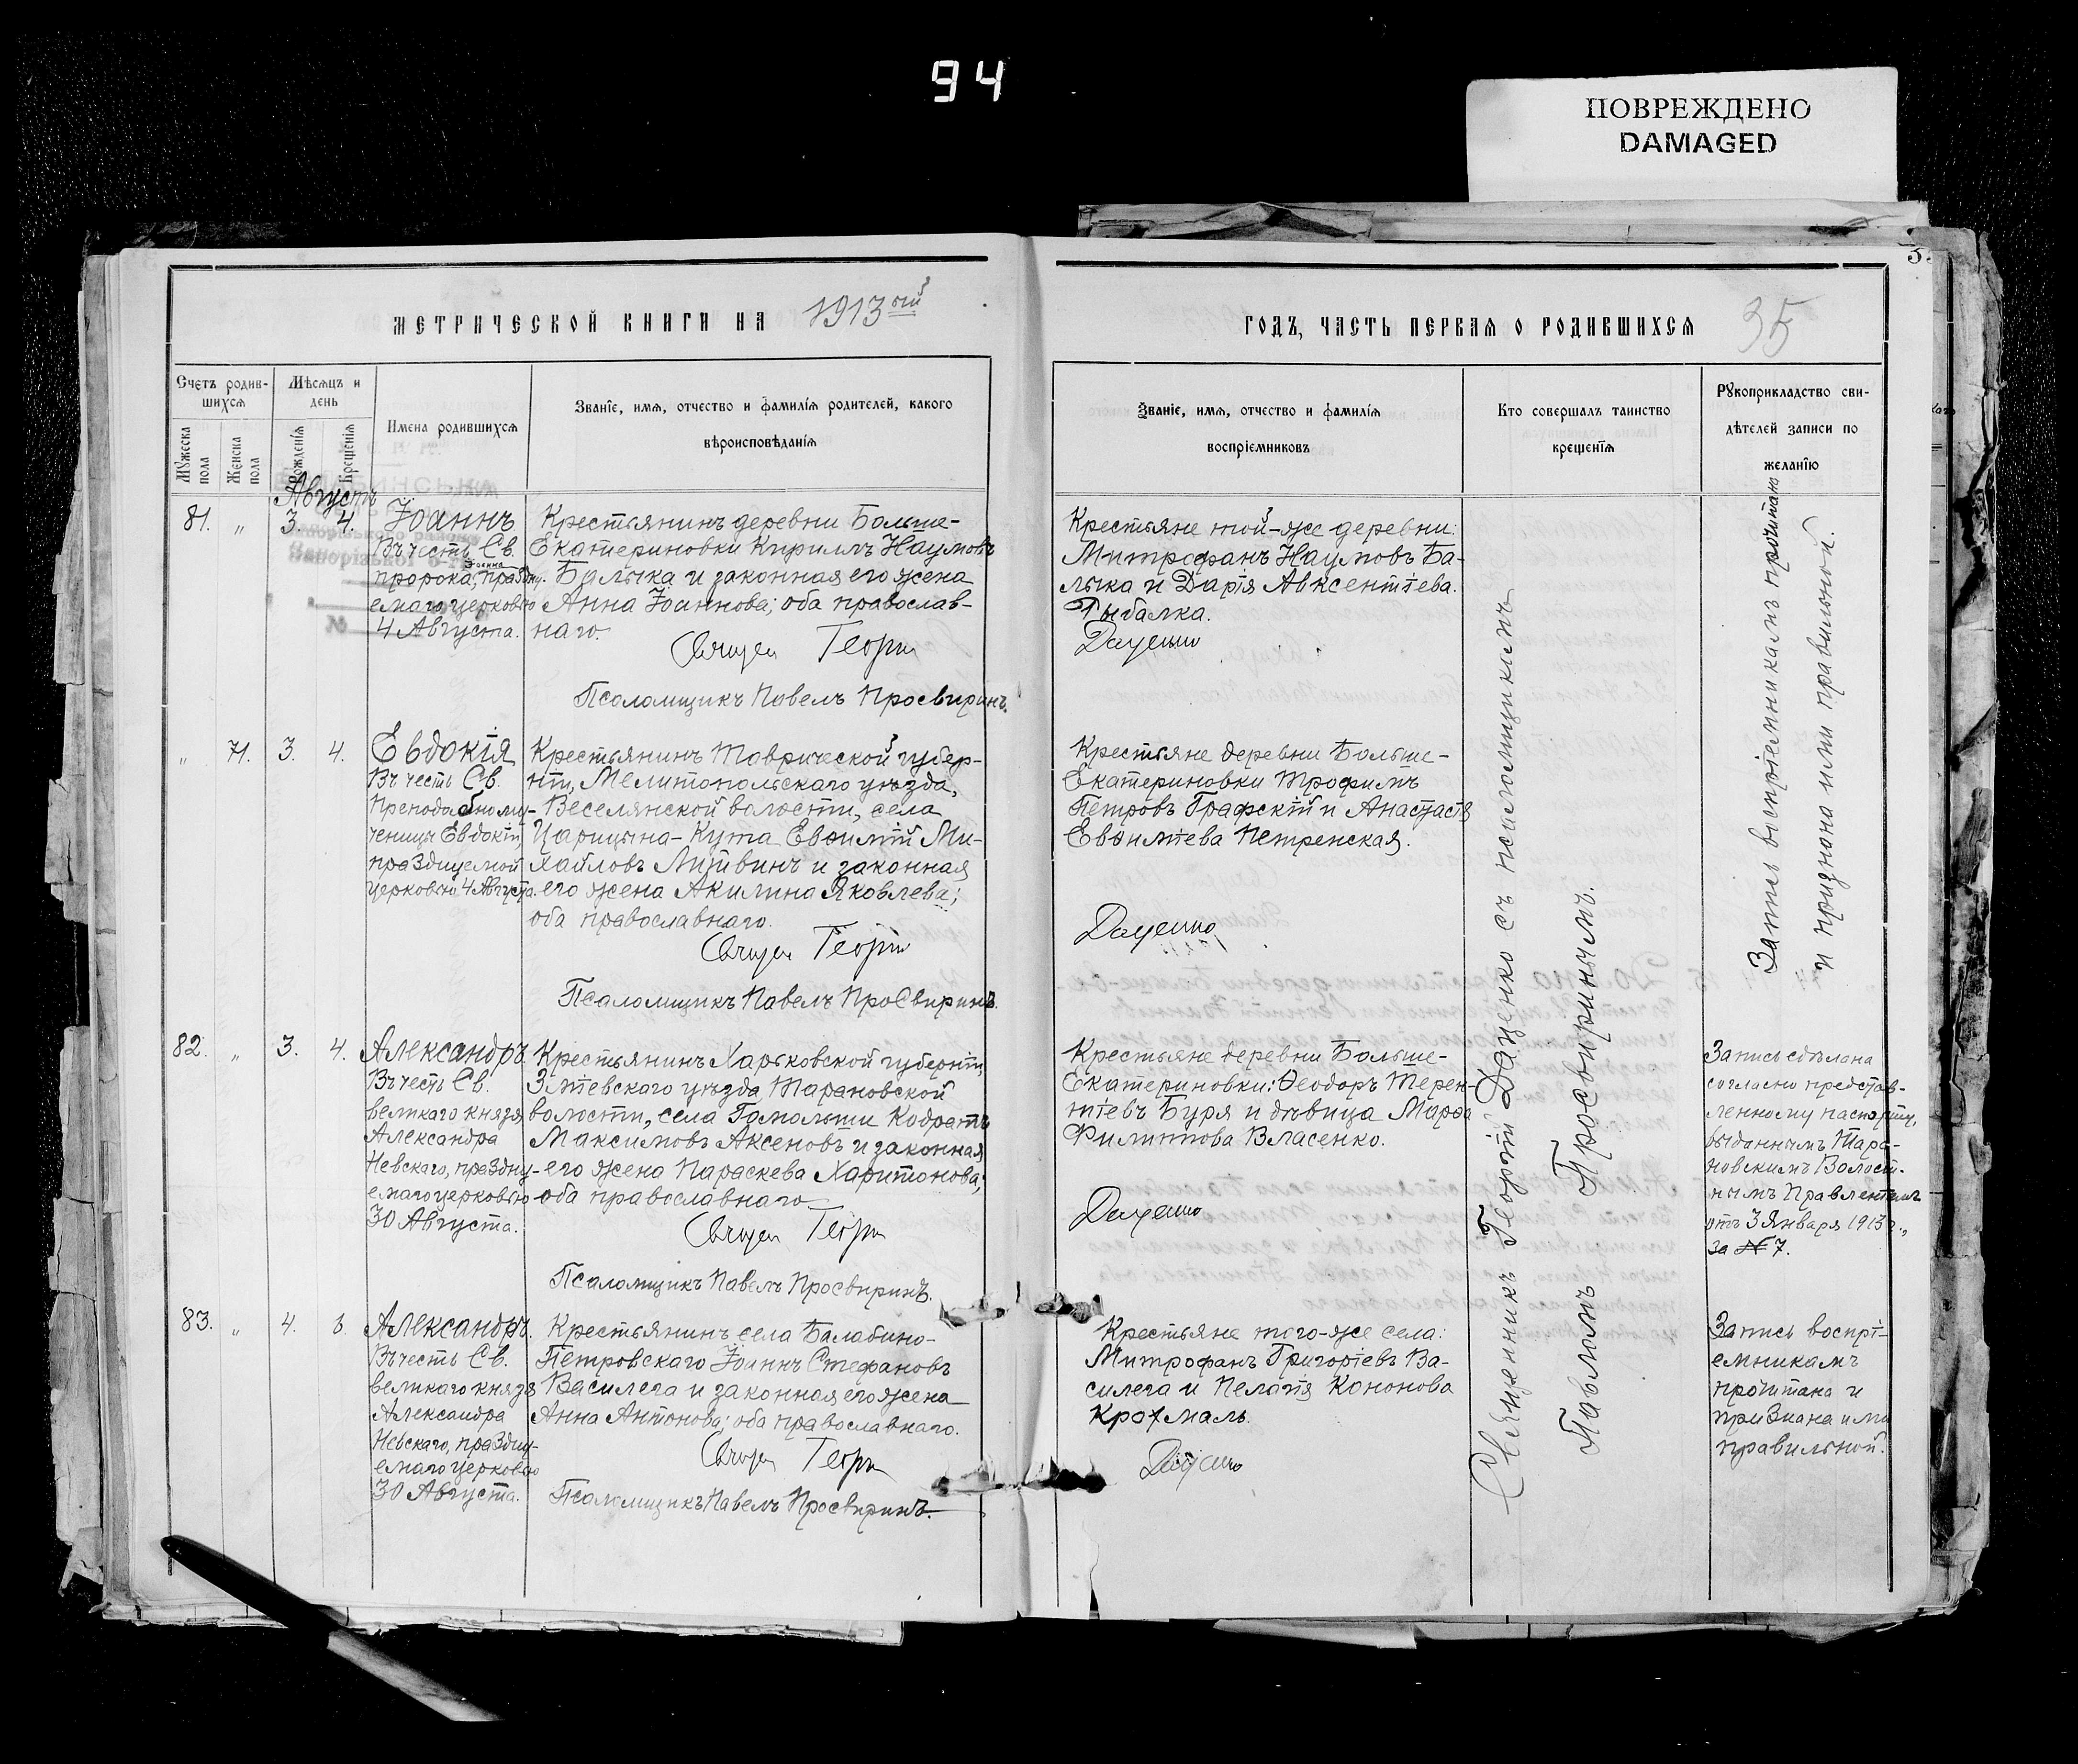 94
ПОВРЕЖДЕНО
DAMAGED
МЕТРИЧЕСКОЙ КНИГИ НА 1913 ый
Счетъ родив-
шихся
Мѣсяцъ и
день
Имена родившихся
Званіе, имя, отчество и фамилія родителей, какого
вѣроисповѣданія
Мужеска
пола
Женска
пола
Рожденія
Крещенія
Августъ
81. „ 3. 4.
Іоаннъ
Въ честь Св.
пророка, Іоанна праздну-
емаго церковью
4 Августа.
Крестьянинъ деревни Больше-
Екатериновки Кириллъ Наумовъ
Балыка и законная его жена
Анна Іоаннова; оба православ-
наго.
Священ Георги
Псаломщикъ Павелъ Просвиринъ.
„ 71. 3. 4.
Евдокія
Въ честь Св.
Преподобному-
ченицы Евдокіи,
празднуемой
церковью 4 Августа.
Крестьянинъ Таврической губер-
ніи, Мелитопольскаго уѣзда,
Веселянской волости, села
Царицына-Кута Евѳимій Ми-
хайловъ Литвинъ и законная
его жена Акилина Яковлева;
оба православнаго.
Священ Георги
Псаломщикъ Павелъ Просвиринъ.
82. „ 3. 4.
Александръ.
Въ честь Св.
великаго князя
Александра
Невскаго, праздну-
емаго церковью
30 Августа.
Крестьянинъ Харьковской губерніи,
Зміевского уѣзда, Тарановской
волости, села Гомольши Кодратъ
Максимовъ Аксеновъ и законная
его жена Параскева Харитонова;
оба православнаго
Священ Георги
Псаломщикъ Павелъ Просвиринъ.
83. „ 4. 6
Александръ.
Въ честь Св.
великаго князя
Александра
Невскаго, праздну-
емаго церковью
30 Августа.
Крестьянинъ села Балабино-
Петровскаго Іоаннъ Стефановъ
Василега и законная его жена
Анна Антонова; оба православнаго.
Священ Георги
Псаломщикъ Павелъ Просвиринъ.
ГОДЪ, ЧАСТЬ ПЕРВАЯ О РОДИВШИХСЯ
35
Званіе, имя, отчество и фамилія
воспріемниковъ
Кто совершалъ таинство
крещенія
Рукоприкладство сви-
дѣтелей записи по
желанію
Крестьяне той-же деревни:
Митрофанъ Наумовъ Ба-
лыка и Дарія Авксентіева
Рыбалка.
Даценко
Крестьяне деревни Больше-
Екатериновки Трофимъ
Петровъ Графскій и Анастасія
Евѳиміева Петренская.
Даценко
Крестьяне деревни Больше-
Екатериновки: Ѳеодоръ Терен-
тіевъ Буря и дѣвица Марѳа
Филиппова Власенко.
Даценко
Крестьяне того-же села:
Митрофанъ Григоріевъ Ва-
силега и Пелагія Кононова
Крохмаль.
Даценко
Священникъ Георгій Даценко съ псаломщикомъ
Павломъ Просвиринымъ.
Запись воспріемникамъ прочитана
и признана ими правильной.
Запись сдѣлана
согласно представ-
ленному паспорту,
выданнымъ Тара-
новскимъ Волост-
нымъ Правленіемъ
отъ 3 Января 1913 г.,
за № 7.
Запись воспрі-
емникамъ
прочитана и
признана ими
правильной.